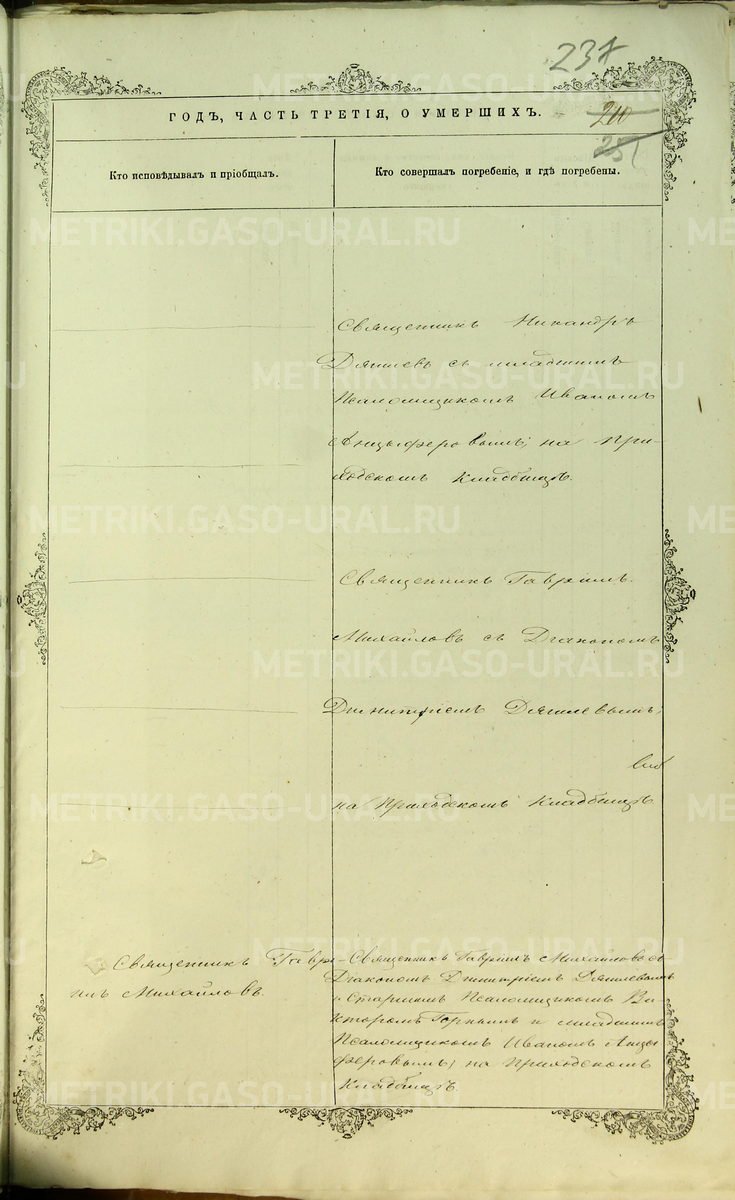 237
ГОДЪ, ЧАСТЬ ТРЕТІЯ, О УМЕРШИХЪ.
210
251
Кто исповѣдывалъ и пріобщалъ.
Кто совершалъ погребеніе, и гдѣ погребены.
Священникъ Никандръ
Дягилевъ съ младшимъ
Псаломщикомъ Иваномъ
Анцыферовымъ; на При-
ходскомъ кладбищѣ.
Священникъ Гавріилъ
Михайловъ съ Діакономъ
Димитріемъ Дягилевымъ;
на Приходскомъ кладбищѣ
Священникъ Гаврі-
илъ Михайловъ.
Священникъ Гавріилъ Михайловъ съ
Діакономъ Димитріемъ Дягилевымъ
и Старшимъ Псаломщикомъ Ви-
кторомъ Горнымъ и младшимъ
Псаломщикомъ Иваномъ Анцы
феровымъ; на Приходскомъ
Кладбищѣ.
METRIKI.GASO-URAL.RU